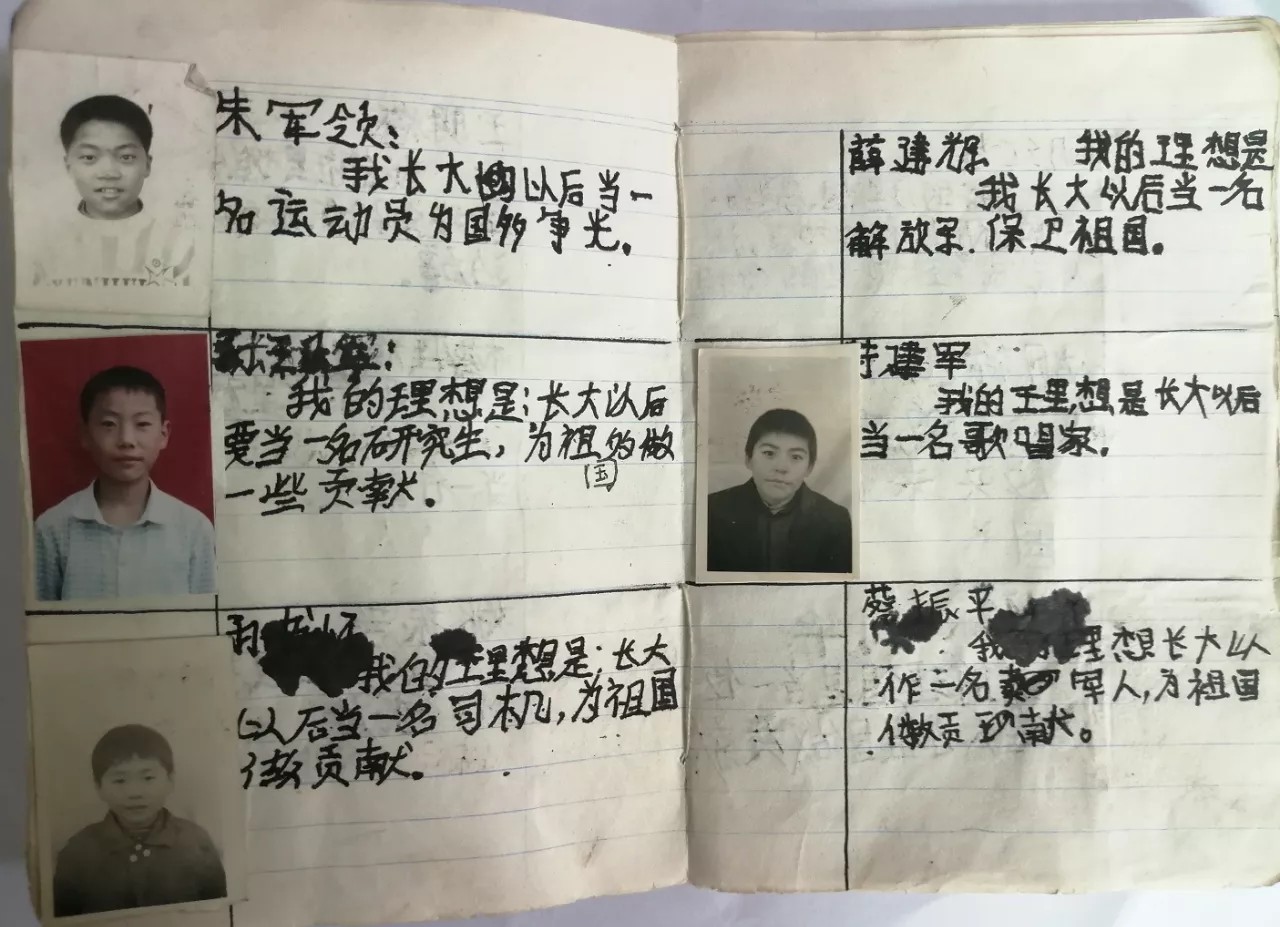 朱军领:
我长大以后当一
名运动员为国争光。
我的理想是:长大以后
要当一名研究生,为祖国做
一些贡献。
我的理想是:长大
以后当一名司机,为祖国
做贡献。
薛建辉 我的理想是
我长大以后当一名
解放军.保卫祖国。
建军
我的理想是长大以后
当一名歌唱家。
蔡振平
我的理想长大以
作一名军人,为祖国
做贡献。